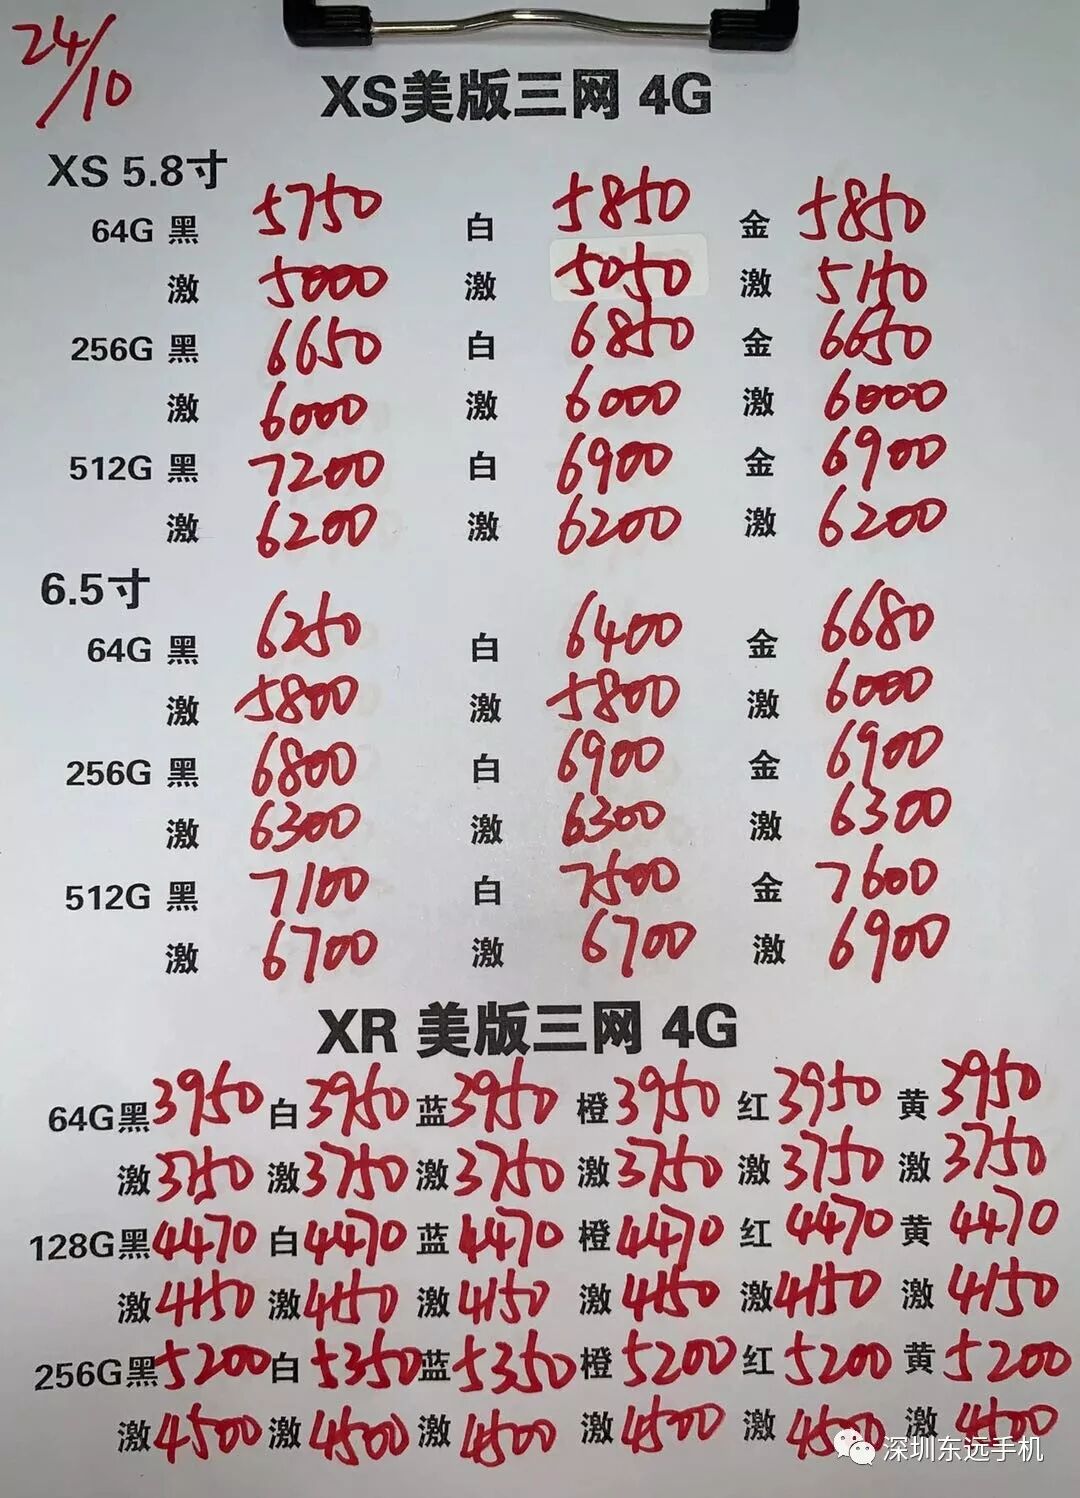 24/10
XS美版三网 4G
XS 5.8寸
64G 黑 5750 白 5850 金 5850
激 5000 激 5050 激 5150
256G 黑 6650 白 6850 金 6650
激 6000 激 6000 激 6000
512G 黑 7200 白 6900 金 6900
激 6200 激 6200 激 6200
6.5寸
64G 黑 6250 白 6400 金 6680
激 5800 激 5800 激 6000
256G 黑 6800 白 6900 金 6900
激 6300 激 6300 激 6300
512G 黑 7100 白 7500 金 7600
激 6700 激 6700 激 6900
XR 美版三网 4G
64G黑3950 白3950 蓝3950 橙3950 红3950 黄3950
激3750 激3750 激3750 激3750 激3750 激3750
128G黑4470 白4470 蓝4470 橙4470 红4470 黄4470
激4150 激4150 激4150 激4150 激4150 激4150
256G黑5200 白5350 蓝5350 橙5200 红5200 黄5200
激4500 激4500 激4500 激4500 激4500 激4500
深圳东远手机